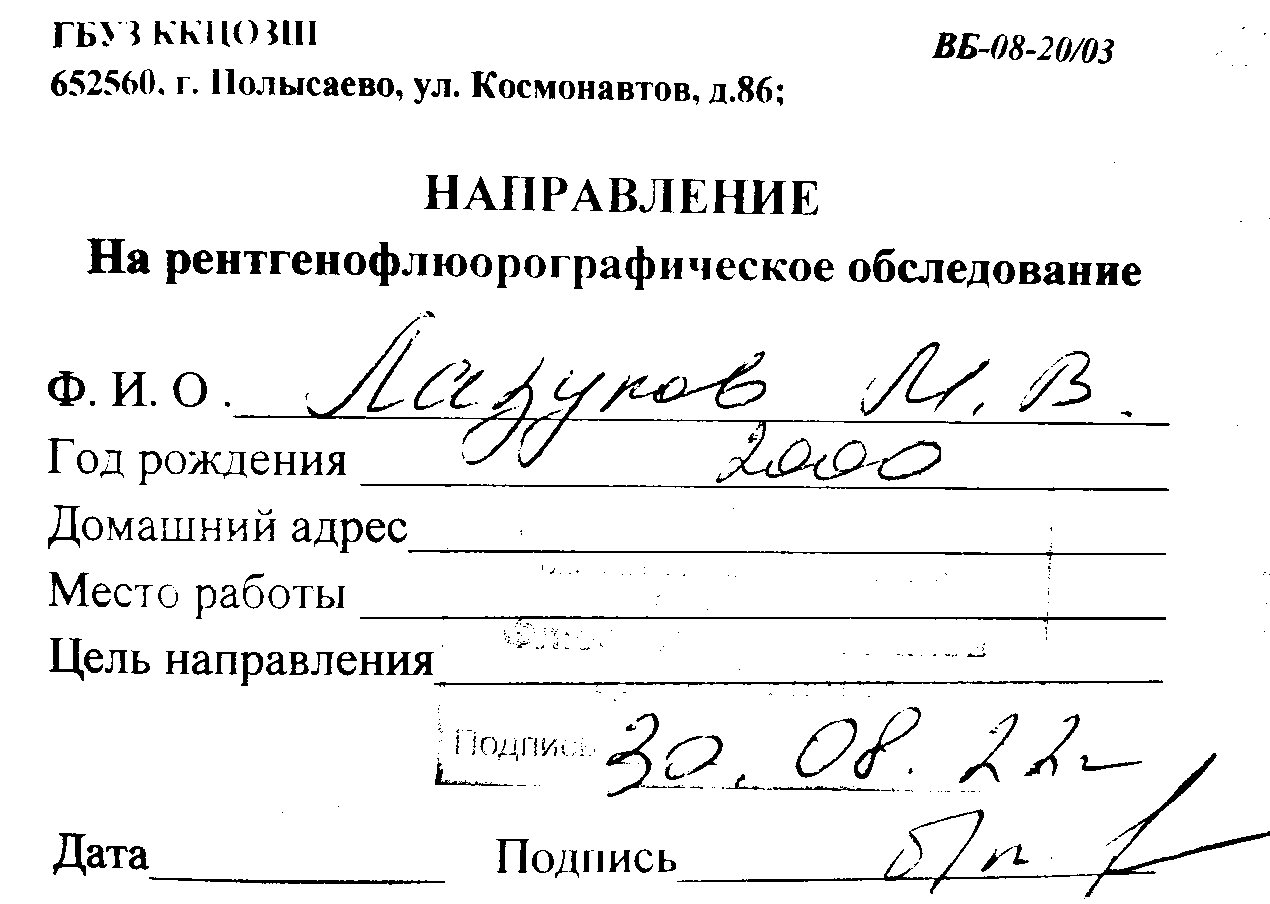 ГБУЗ ККЦОЗШ
ВБ-08-20/03
652560, г. Полысаево, ул. Космонавтов, д.86;
НАПРАВЛЕНИЕ
На рентгенофлюорографическое обследование
Ф. И. О. Лазуков М. В.
Год рождения 2000
Домашний адрес
Место работы
Цель направления
Подпись 30.08.22г
Дата Подпись